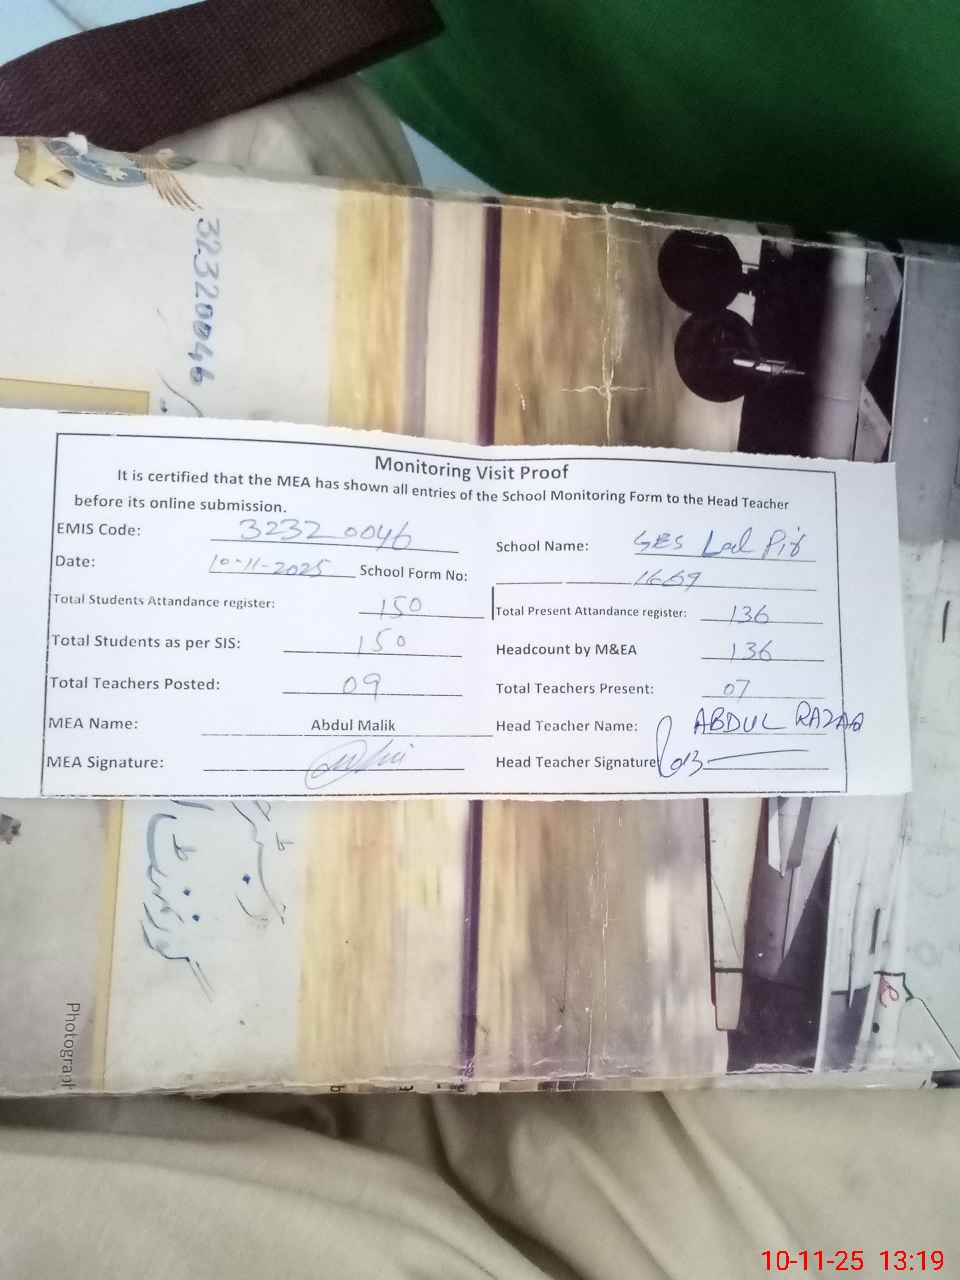 32320046
Monitoring Visit Proof
It is certified that the MEA has shown all entries of the School Monitoring Form to the Head Teacher
before its online submission.
EMIS Code: 32320046
School Name: GES Lal Pir
Date: 10-11-2025 School Form No: 1669
Total Students Attandance register: 150
Total Present Attandance register: 136
Total Students as per SIS: 150
Headcount by M&EA 136
Total Teachers Posted: 09
Total Teachers Present: 07
MEA Name: Abdul Malik
Head Teacher Name: ABDUL RAZAQ
MEA Signature:
Head Teacher Signature
Photograph
10-11-25 13:19